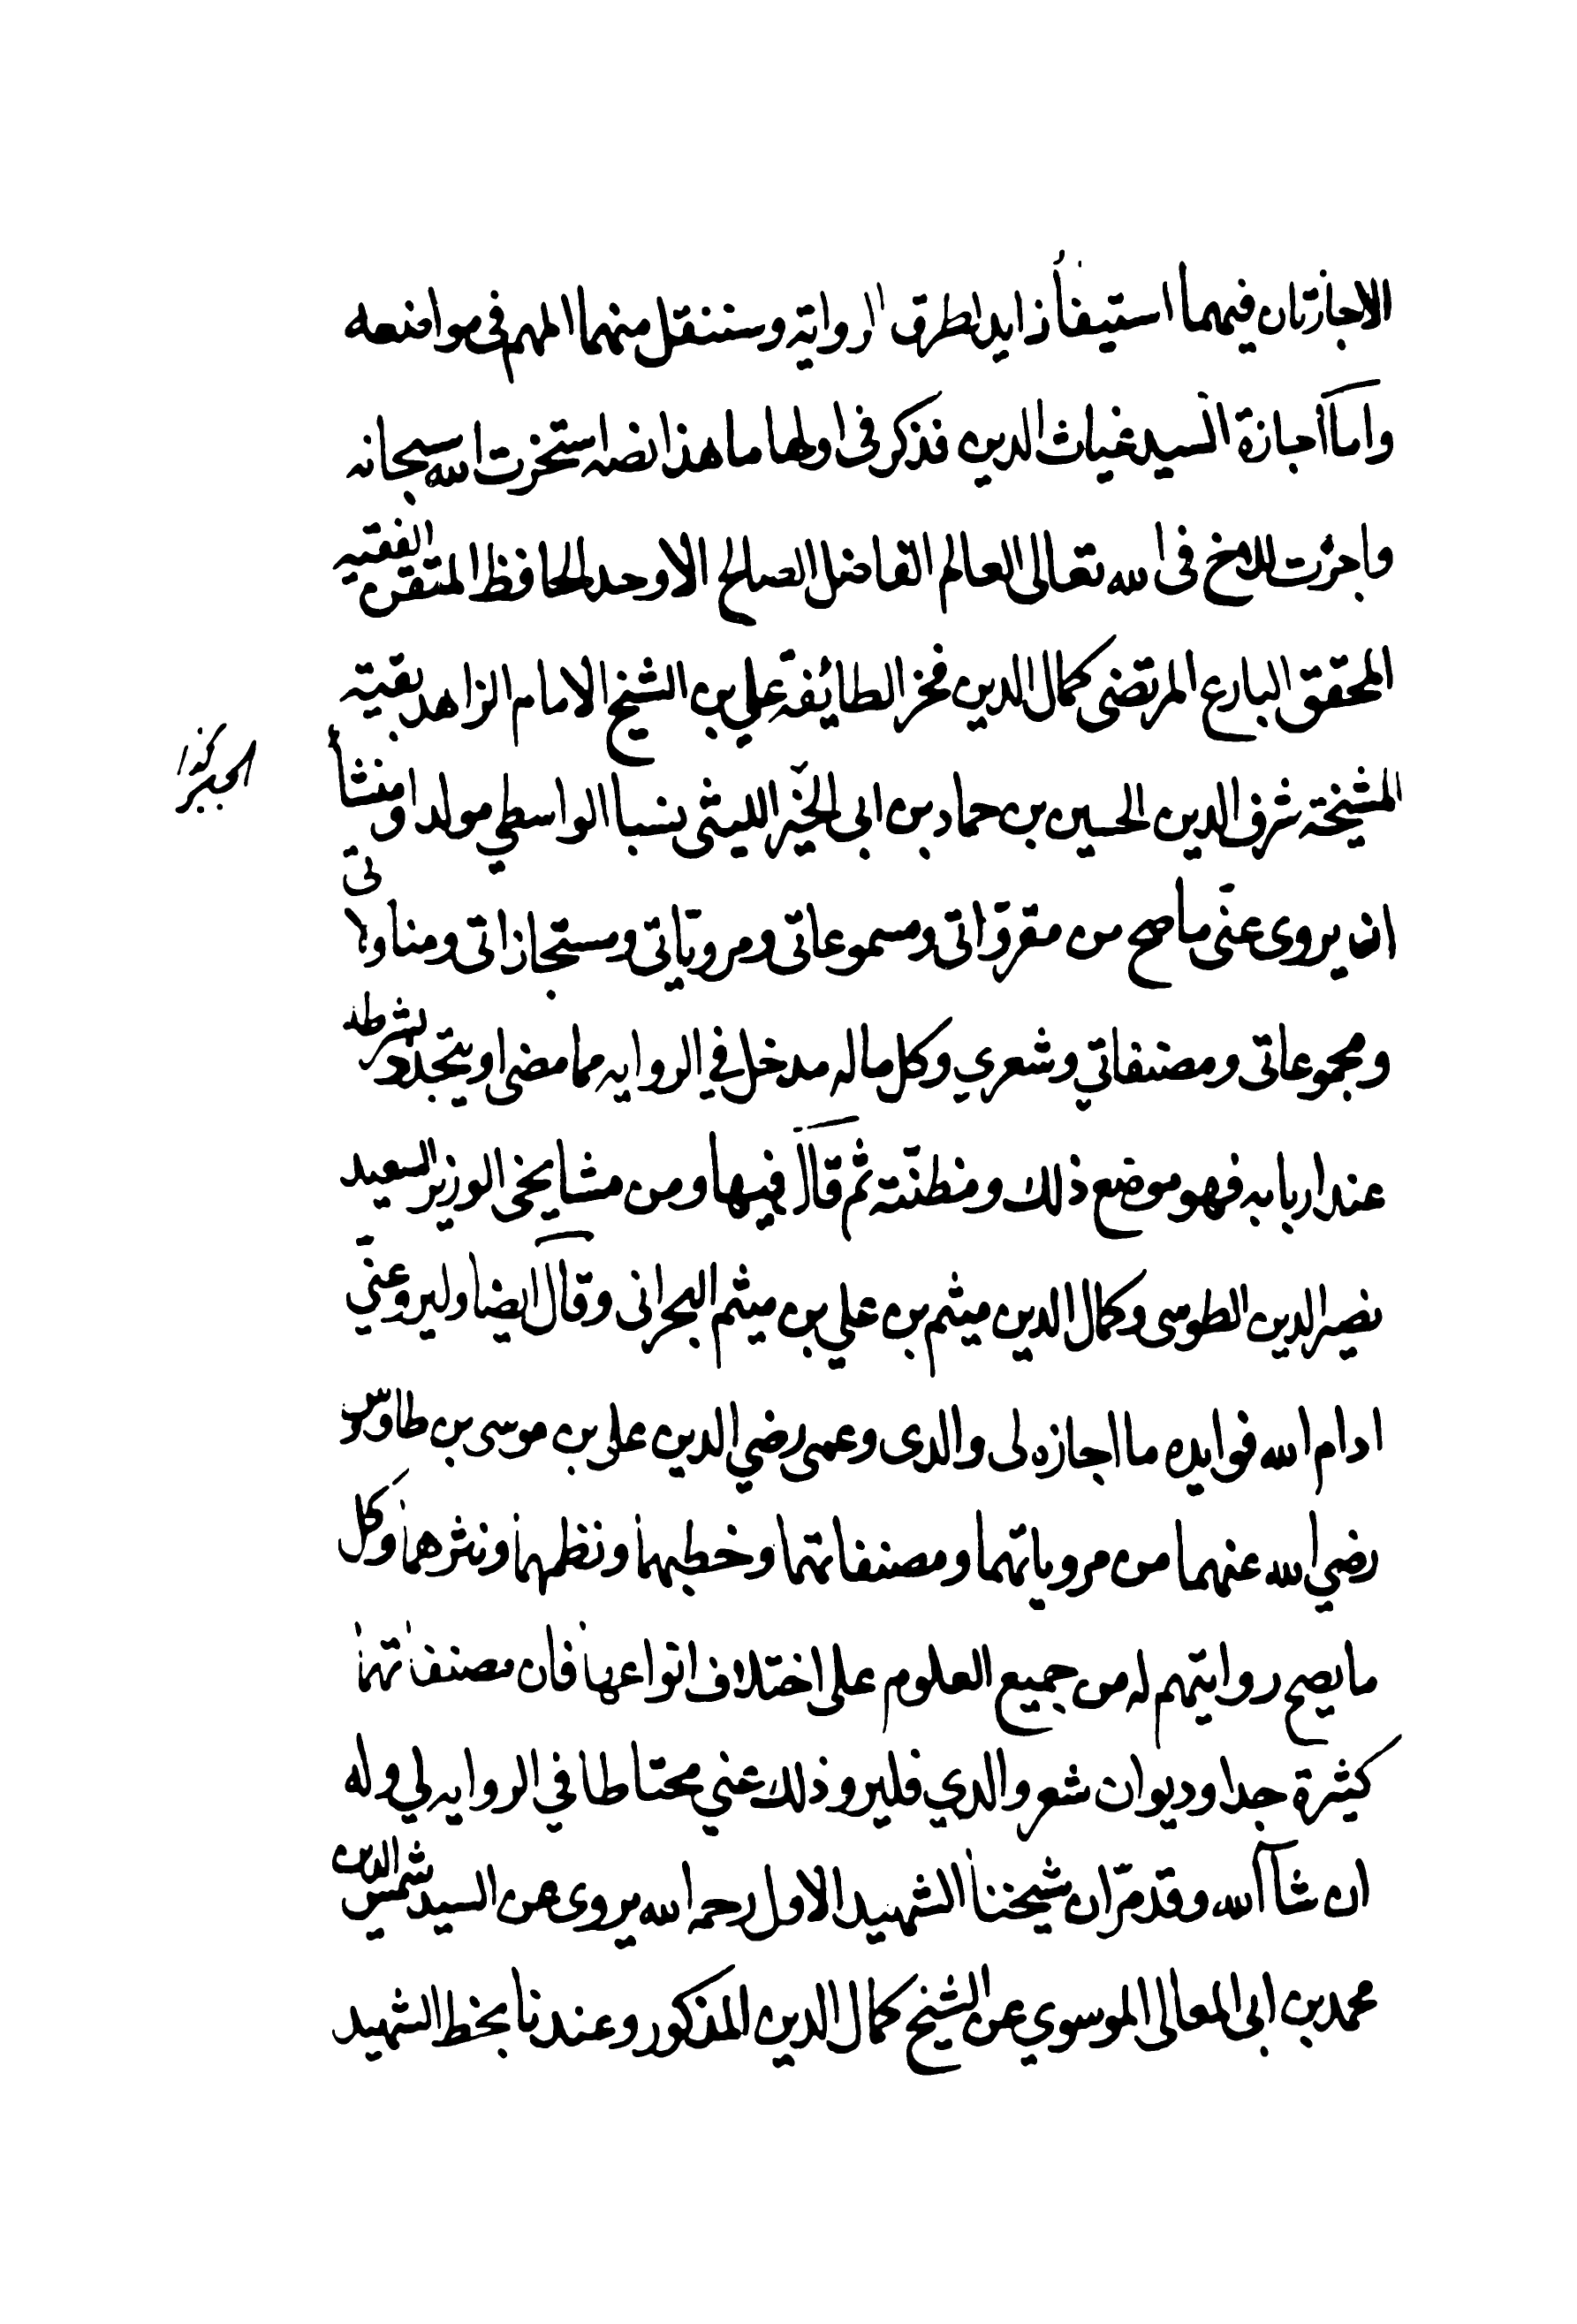 الاجازتان فيهما استيفاً زايد لطرق الرواية وسننقل منهما المهم فى مواضعه
واما اجازة السيد غياث الدين فذكر فى اولها ما هذا نصه استخرت الله سبحانه
واجزت للاخ فى الله تعالى العالم الفاضل الصالح الاوحد الحافظ المتقن الفقيه
المحقق البارع المرتضى كمال الدين فخر الطائفة علي بن الشيخ الامام الزاهد بقية
المشيخة شرف الدين الحسين بن حماد بن ابى الخير الليثى نسبا الواسطي مولدا ومنشأ
ان يروى عنى ما صح من مقرواتى ومسموعاتى ومروياتى ومستجازاتى ومناولاتى
ومجموعاتى ومصنفاتي وشعري وكل ما له مدخل في الروايه مما مضى او يتجدد بشرطه
عند اربابه فهو موضع ذلك ومظنته ثم قال فيها ومن مشايخى الوزير السعيد
نصير الدين الطوسى وكمال الدين ميثم بن علي بن ميثم البحرانى وقال ايضا وليرو عنى
ادام الله فوايده ما اجازه لى والدى وعمى رضي الدين على بن موسى بن طاوس
رضي الله عنهما من مروياتهما ومصنفاتهما وخطبهما ونظمهما ونثرهما وكل
ما يصح روايتهم له من جميع العلوم على اختلاف انواعها فان مصنفاتهما
كثيرة جدا وديوان شعر والدي فليرو ذلك عني محتاطا في الروايه لي وله
ان شآ الله وقد مرّ ان شيخنا الشهيد الاول رحمه الله يروى عن السيد شمس الدين
محمد بن ابى المعالى الموسوي عن الشيخ كمال الدين المذكور وعندنا بخط الشهيد